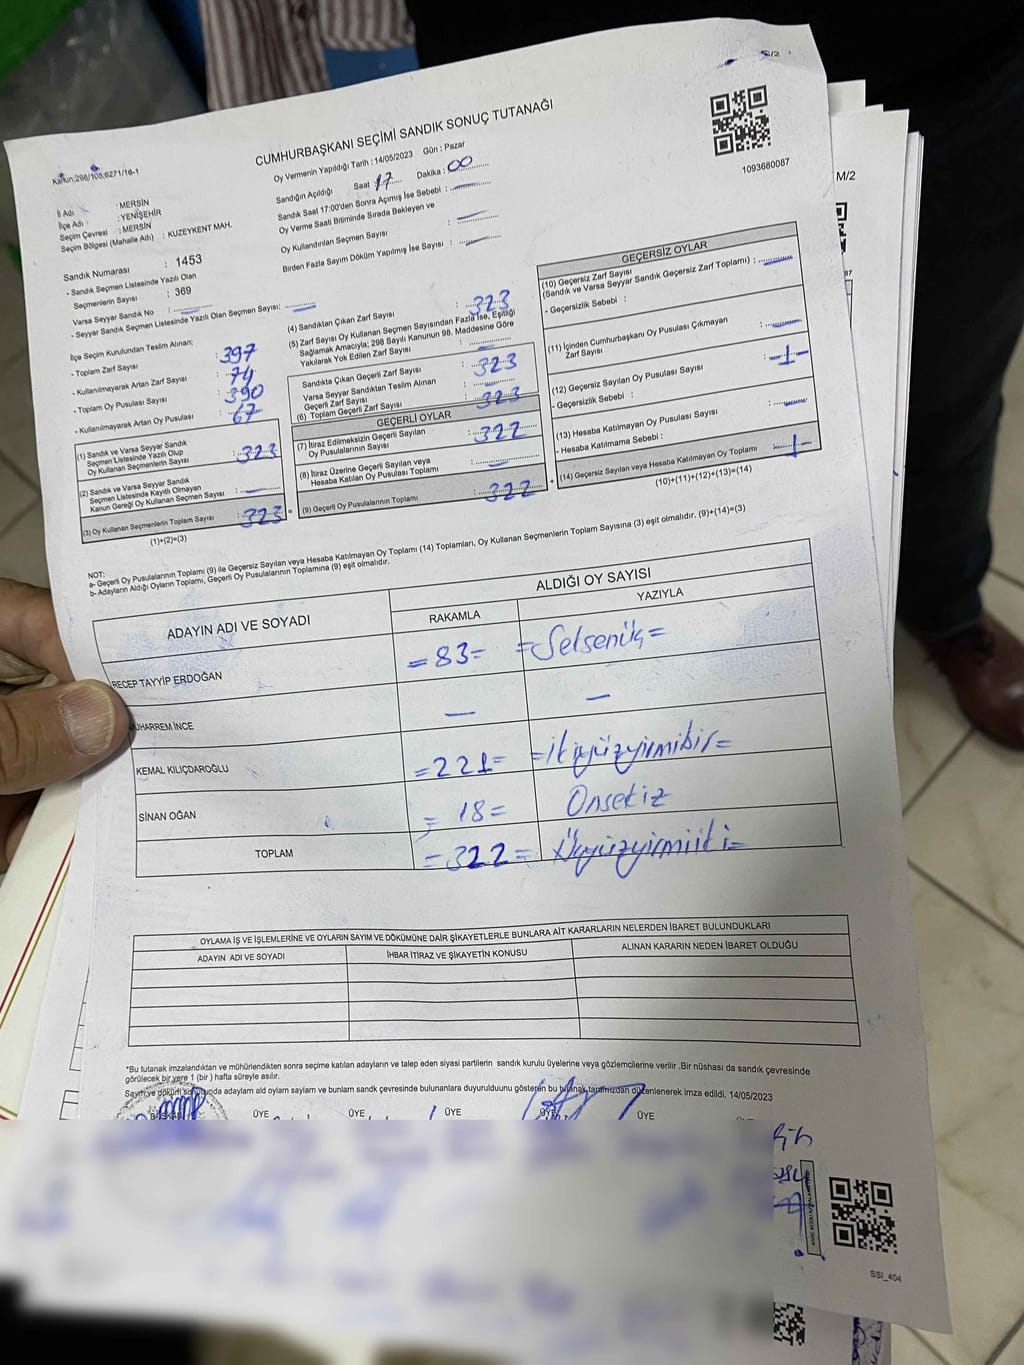 CUMHURBAŞKANI SEÇİMİ SANDIK SONUÇ TUTANAĞI
Oy Vermenin Yapıldığı Tarih : 14/05/2023 Gün : Pazar
Sandığın Açıldığı Saat : 17 Dakika : 00
Sandık Saat 17:00'den Sonra Açımış İse Sebebi :
Oy Verme Saati Bitiminde Sırada Bekleyen ve
Oy Kullandırılan Seçmen Sayısı :
Birden Fazla Sayım Döküm Yapılmış İse Sayısı :
1093680087
M/2
İl Adı : MERSİN
İlçe Adı : YENİŞEHİR
Seçim Çevresi : MERSİN
Seçim Bölgesi (Mahalle Adı) : KUZEYKENT MAH.
Sandık Numarası : 1453
- Sandık Seçmen Listesinde Yazılı Olan
Seçmenlerin Sayısı : 369
Varsa Seyyar Sandık No :
- Seyyar Sandık Seçmen Listesinde Yazılı Olan Seçmen Sayısı:
İlçe Seçim Kurulundan Teslim Alınan;
- Toplam Zarf Sayısı : 397
- Kullanılmayarak Artan Zarf Sayısı : 74
- Toplam Oy Pusulası Sayısı : 390
- Kullanılmayarak Artan Oy Pusulası : 67
(1) Sandık ve Varsa Seyyar Sandık
Seçmen Listesinde Yazılı Olup
Oy Kullanan Seçmenlerin Sayısı : 323
(2) Sandık ve Varsa Seyyar Sandık
Seçmen Listesinde Kayıtlı Olmayan
Kanun Gereği Oy Kullanan Seçmen Sayısı :
(3) Oy Kullanan Seçmenlerin Toplam Sayısı : 323
(1)+(2)=(3)
(4) Sandıktan Çıkan Zarf Sayısı : 323
(5) Zarf Sayısı Oy Kullanan Seçmen Sayısından Fazla İse, Eşitliği
Sağlamak Amacıyla; 298 Sayılı Kanunun 98. Maddesine Göre
Yakılarak Yok Edilen Zarf Sayısı :
Sandıkta Çıkan Geçerli Zarf Sayısı : 323
Varsa Seyyar Sandıktan Teslim Alınan
Geçerli Zarf Sayısı :
(6) Toplam Geçerli Zarf Sayısı : 323
GEÇERLİ OYLAR
(7) İtiraz Edilmeksizin Geçerli Sayılan
Oy Pusulalarının Sayısı : 322
(8) İtiraz Üzerine Geçerli Sayılan veya
Hesaba Katılan Oy Pusulası Toplamı :
(9) Geçerli Oy Pusulalarının Toplamı : 322
GEÇERSİZ OYLAR
(10) Geçersiz Zarf Sayısı
(Sandık ve Varsa Seyyar Sandık Geçersiz Zarf Toplamı) :
- Geçersizlik Sebebi :
(11) İçinden Cumhurbaşkanı Oy Pusulası Çıkmayan
Zarf Sayısı :
(12) Geçersiz Sayılan Oy Pusulası Sayısı : -1-
- Geçersizlik Sebebi :
(13) Hesaba Katılmayan Oy Pusulası Sayısı :
- Hesaba Katılmama Sebebi :
(14) Geçersiz Sayılan veya Hesaba Katılmayan Oy Toplamı : -1-
(10)+(11)+(12)+(13)=(14)
NOT:
a- Geçerli Oy Pusulalarının Toplamı (9) ile Geçersiz Sayılan veya Hesaba Katılmayan Oy Toplamı (14) Toplamları, Oy Kullanan Seçmenlerin Toplam Sayısına (3) eşit olmalıdır. (9)+(14)=(3)
b- Adayların Aldığı Oyların Toplamı, Geçerli Oy Pusulalarının Toplamına (9) eşit olmalıdır.
ADAYIN ADI VE SOYADI ALDIĞI OY SAYISI
RAKAMLA YAZIYLA
RECEP TAYYİP ERDOĞAN =83= =Seksenüç=
MUHARREM İNCE — —
KEMAL KILIÇDAROĞLU =221= =İkiyüzyirmibir=
SİNAN OĞAN = 18 = Onsekiz
TOPLAM =322= Üçyüzyirmiiki=
OYLAMA İŞ VE İŞLEMLERİNE VE OYLARIN SAYIM VE DÖKÜMÜNE DAİR ŞİKAYETLERLE BUNLARA AİT KARARLARIN NELERDEN İBARET BULUNDUKLARI
ADAYIN ADI VE SOYADI İHBAR İTİRAZ VE ŞİKAYETİN KONUSU ALINAN KARARIN NEDEN İBARET OLDUĞU
*Bu tutanak imzalandıktan ve mühürlendikten sonra seçime katılan adayların ve talep eden siyasi partilerin sandık kurulu üyelerine veya gözlemcilerine verilir. Bir nüshası da sandık çevresinde
görülecek bir yere 1 (bir ) hafta süreyle asılır.
14/05/2023
BAŞKAN ÜYE ÜYE ÜYE ÜYE ÜYE
SSI_404